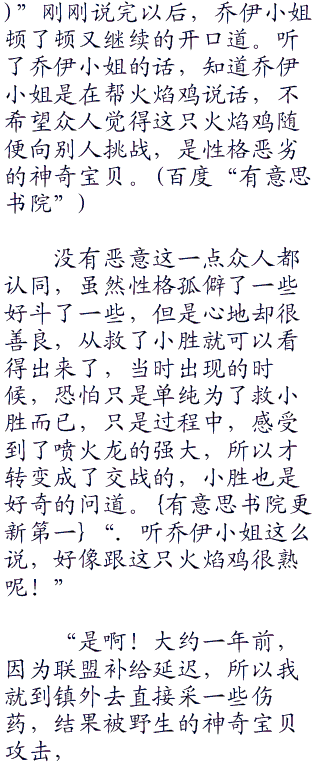 )”刚刚说完以后，乔伊小姐
顿了顿又继续的开口道。听
了乔伊小姐的话，知道乔伊
小姐是在帮火焰鸡说话，不
希望众人觉得这只火焰鸡随
便向别人挑战，是性格恶劣
的神奇宝贝。(百度“有意思
书院”)
没有恶意这一点众人都
认同，虽然性格孤僻了一些
好斗了一些，但是心地却很
善良，从救了小胜就可以看
得出来了，当时出现的时
候，恐怕只是单纯为了救小
胜而已，只是过程中，感受
到了喷火龙的强大，所以才
转变成了交战的，小胜也是
好奇的问道。{有意思书院更
新第一}“．听乔伊小姐这么
说，好像跟这只火焰鸡很熟
呢！”
“是啊！大约一年前，
因为联盟补给延迟，所以我
就到镇外去直接采一些伤
药，结果被野生的神奇宝贝
攻击，